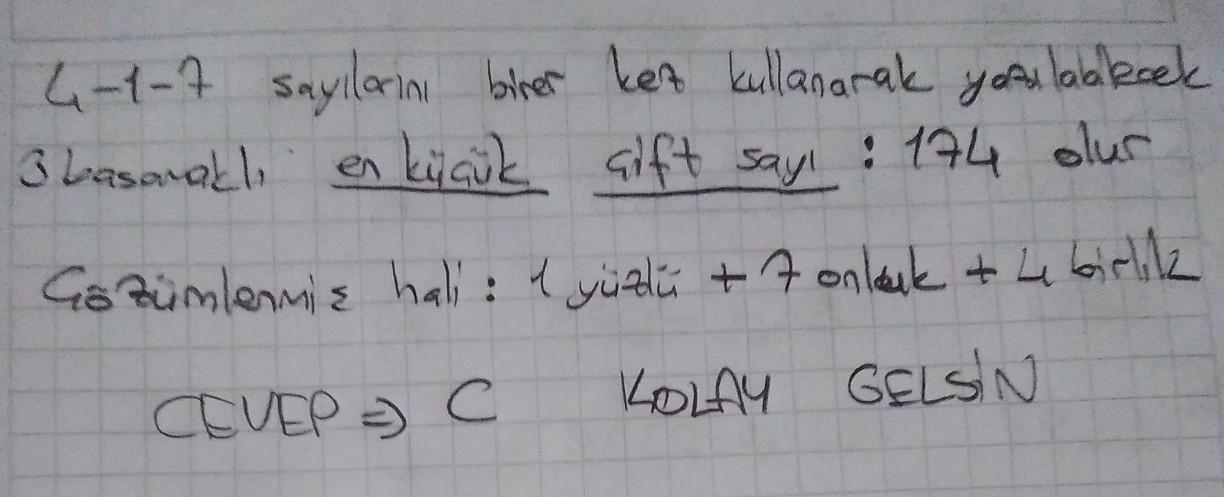 4-1-7 sayılarını birer kez kullanarak yazılabilecek
3 basamaklı en küçük çift sayı : 174 olur
Çözümlenmiş hali : 1 yüzlü + 7 onluk + 4 birlik
CEVEP => C KOLAY GELSİN